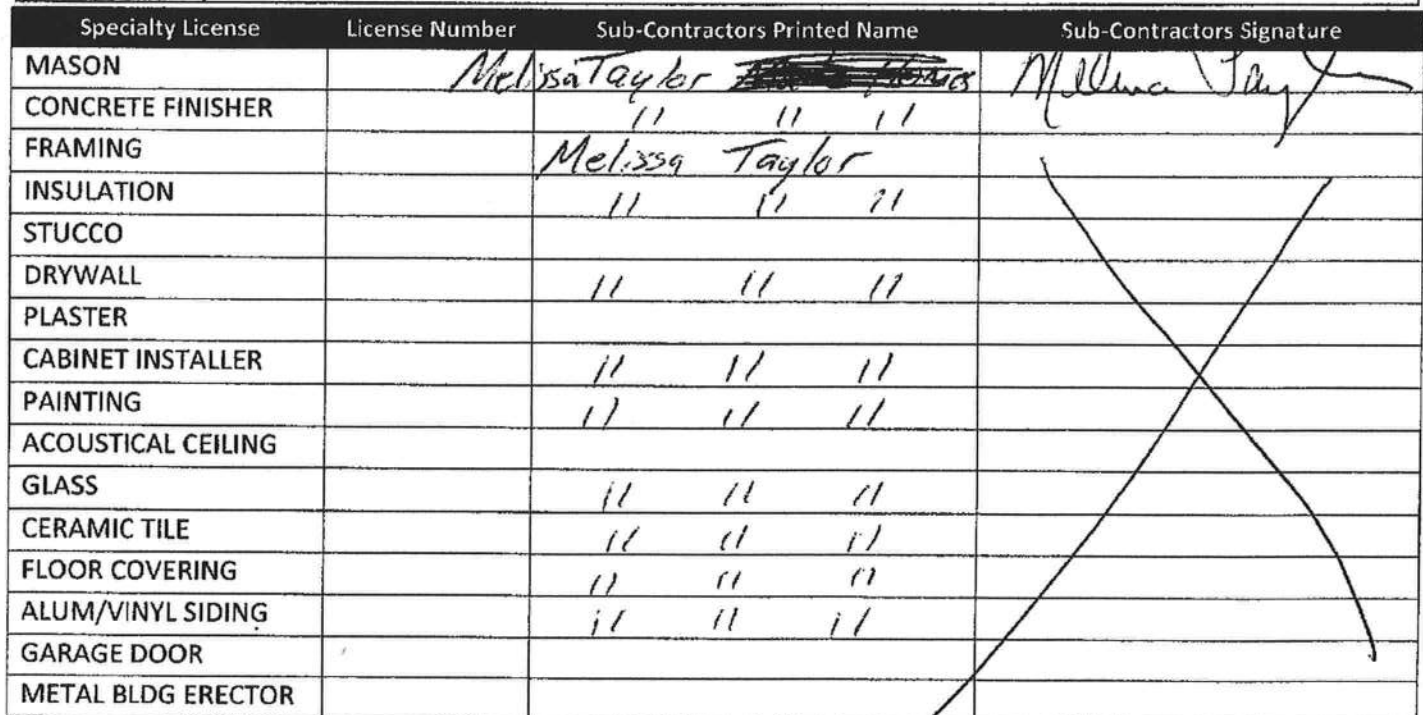 Specialty License License Number Sub-Contractors Printed Name Sub-Contractors Signature
MASON Melissa Taylor
CONCRETE FINISHER " " "
FRAMING Melissa Taylor
INSULATION " " "
STUCCO
DRYWALL " " "
PLASTER
CABINET INSTALLER " " "
PAINTING " " "
ACOUSTICAL CEILING
GLASS " " "
CERAMIC TILE " " "
FLOOR COVERING " " "
ALUM/VINYL SIDING " " "
GARAGE DOOR
METAL BLDG ERECTOR